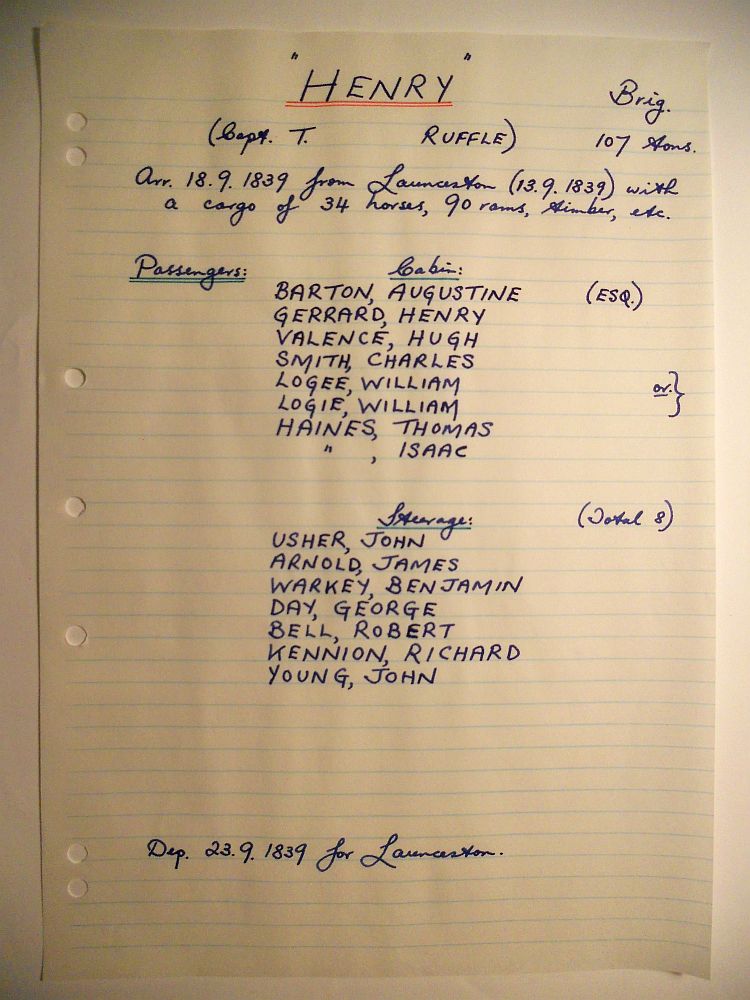 "HENRY"
Brig.
(Capt. T. RUFFLE) 107 tons.
Arr. 18.9.1839 from Launceston (13.9.1839) with
a cargo of 34 horses, 90 rams, timber, etc.
Passengers: Cabin:
BARTON, AUGUSTINE (ESQ.)
GERRARD, HENRY
VALENCE, HUGH
SMITH, CHARLES
LOGEE, WILLIAM or }
LOGIE, WILLIAM
HAINES, THOMAS
" , ISAAC
Steerage: (Total 8)
USHER, JOHN
ARNOLD, JAMES
WARKEY, BENJAMIN
DAY, GEORGE
BELL, ROBERT
KENNION, RICHARD
YOUNG, JOHN
Dep. 23.9.1839 for Launceston.